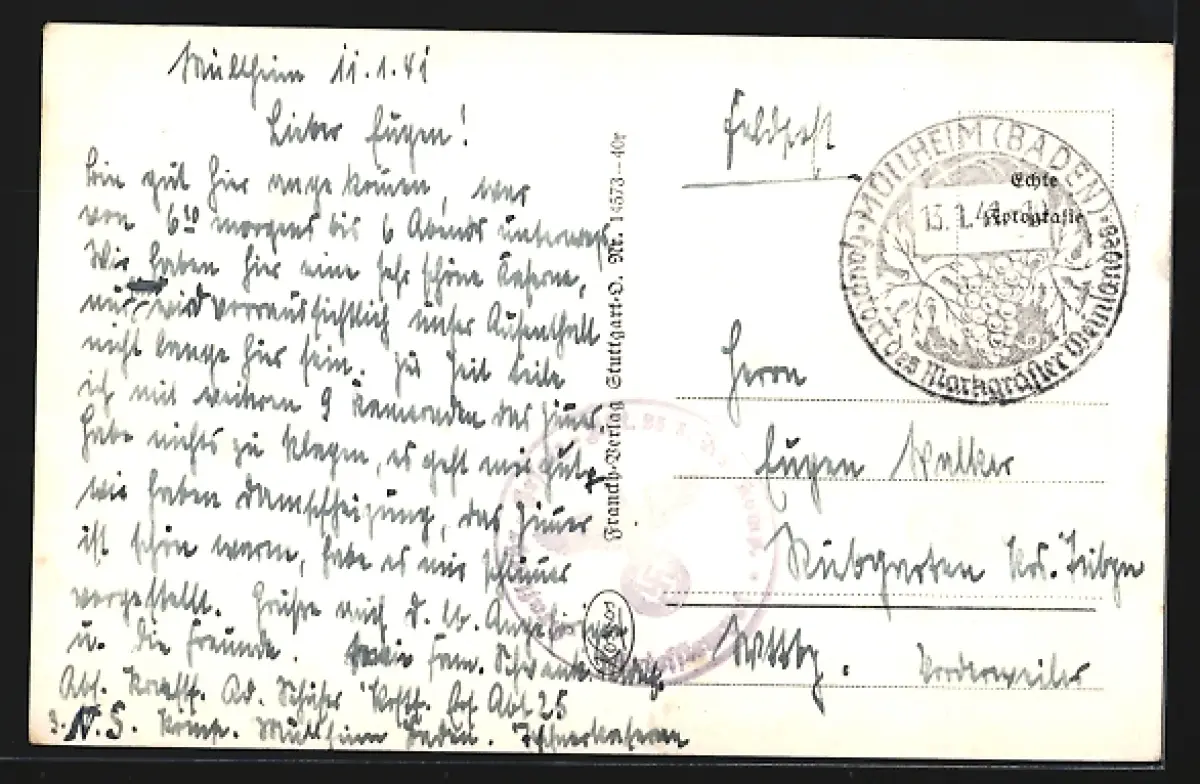 Müllheim 11.1.41
Lieber Eugen!
Bin gut hier angekommen, war
von 6¹⁰ morgens bis 6 Abends unterwegs.
Wir haben hier eine sehr schöne Kaserne,
nur wird vorraussichtlich unser Aufenthalt
nicht lange hier sein. Zur Zeit teile
ich mit weiteren 9 Kameraden das Zimer,
habe nichts zu klagen, es geht mir gut,
wir haben Dampfheizung, das Zimer
ist schön warm, habe es mir schlimer
vorgestellt. Grüße mich d. lb. Angehörigen
u. die Freunde. Fam. Schwenk
Abs. Kraftf. Ad. Abt 25
3. N.S. Komp. Müllheim Baden.
Franckh-Verlag Stuttgart-O. Nr. 14573—40r
Feldpost
Echte
Fotografie
MÜLLHEIM (BADEN)
13.1.41
Hauptort des Markgräfler Weinlandes
Herrn
Eugen Walker
Rübgarten Krs. Tübgn
Wttbg. Vorderweiler